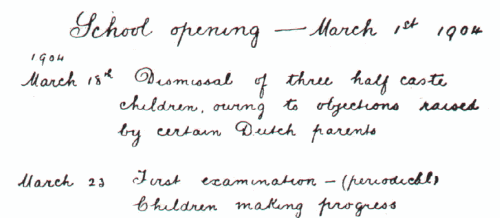 School opening — March 1st 1904
1904
March 18th Dismissal of three half caste
children, owing to objections raised
by certain Dutch parents
March 23 First examination - (periodical)
Children making progress